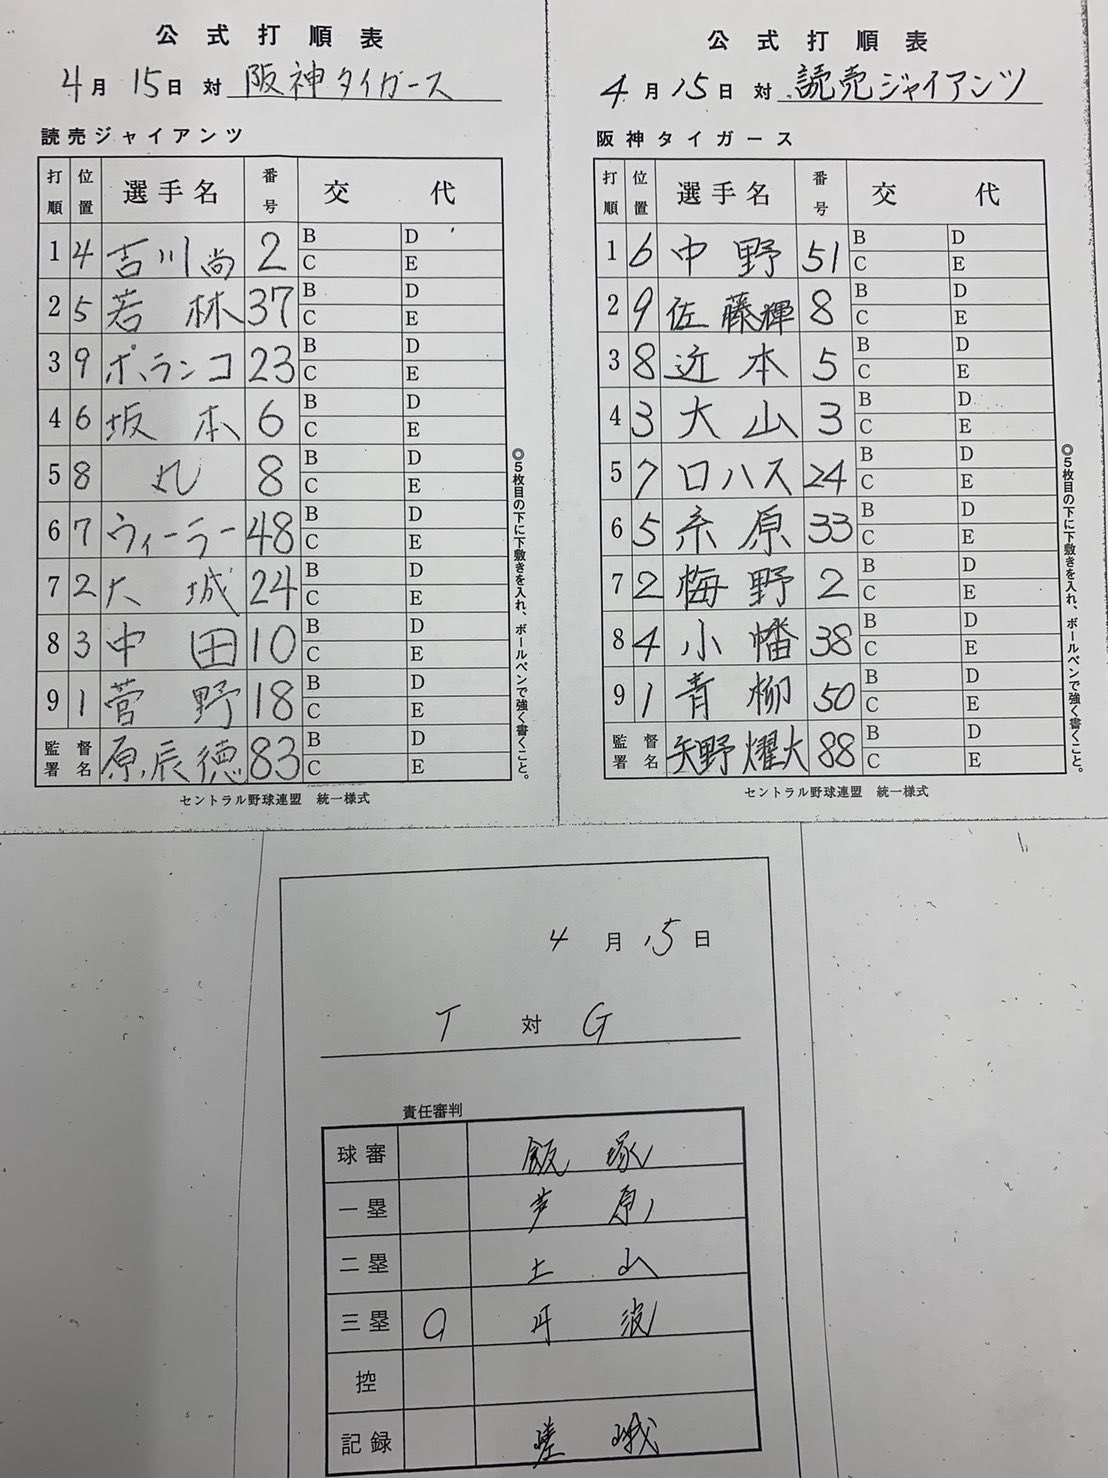 公式打順表
4月15日 対 阪神タイガース
読売ジャイアンツ
打順 位置 選手名 番号 交代
1 4 吉川尚 2 B D C E
2 5 若林 37 B D C E
3 9 ポランコ 23 B D C E
4 6 坂本 6 B D C E
5 8 丸 8 B D C E
6 7 ウィーラー 48 B D C E
7 2 大城 24 B D C E
8 3 中田 10 B D C E
9 1 菅野 18 B D C E
監督署名 原辰徳 83 B D C E
セントラル野球連盟 統一様式
◎5枚目の下に下敷きを入れ、ボールペンで強く書くこと。
公式打順表
4月15日 対 読売ジャイアンツ
阪神タイガース
打順 位置 選手名 番号 交代
1 6 中野 51 B D C E
2 9 佐藤輝 8 B D C E
3 8 近本 5 B D C E
4 3 大山 3 B D C E
5 7 ロハス 24 B D C E
6 5 糸原 33 B D C E
7 2 梅野 2 B D C E
8 4 小幡 38 B D C E
9 1 青柳 50 B D C E
監督署名 矢野燿大 88 B D C E
セントラル野球連盟 統一様式
◎5枚目の下に下敷きを入れ、ボールペンで強く書くこと。
4月15日
T 対 G
責任審判
球審 飯塚
一塁 芦原
二塁 土山
三塁 ○ 丹波
控
記録 嵯峨